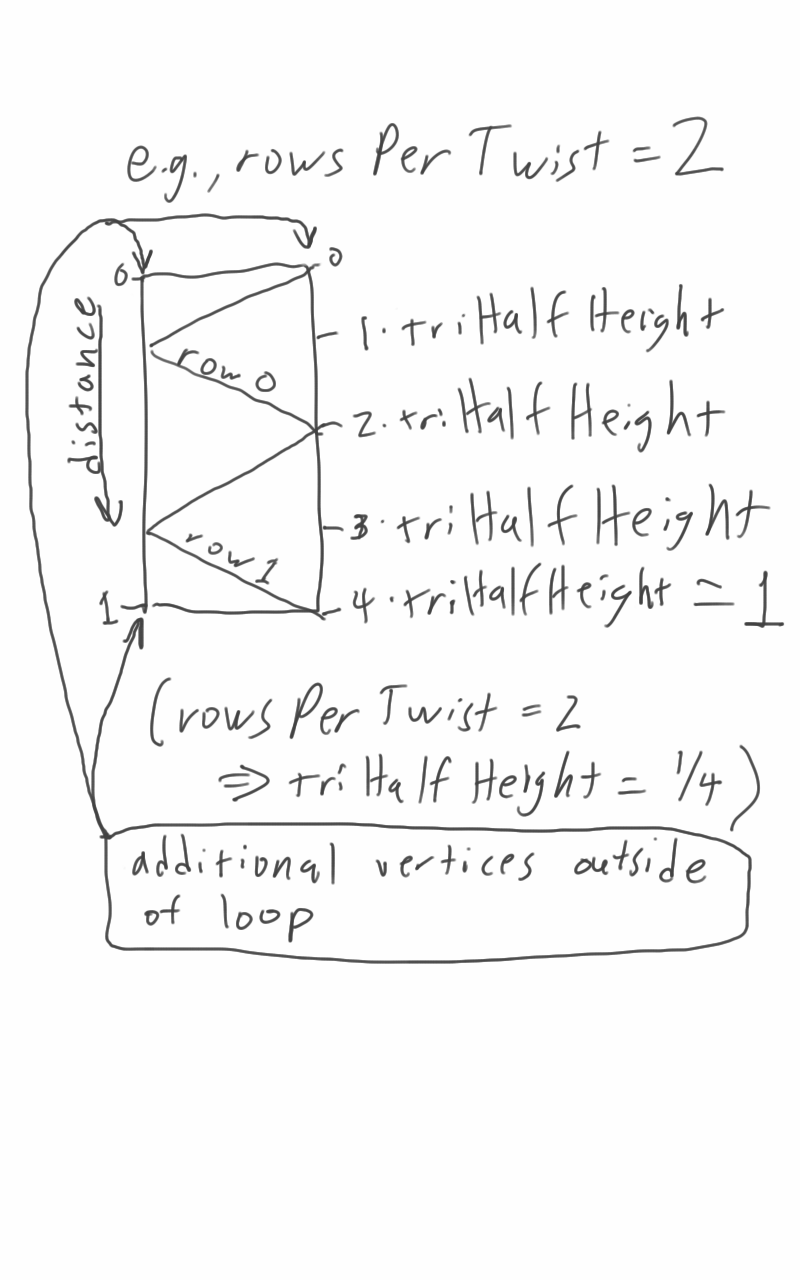 e.g., rows Per Twist = 2
0
0
distance
1. triHalf Height
row 0
2. triHalf Height
3. triHalf Height
row 1
1
4. triHalf Height = 1
(rows Per Twist = 2
⇒ triHalf Height = 1/4)
additional vertices outside
of loop